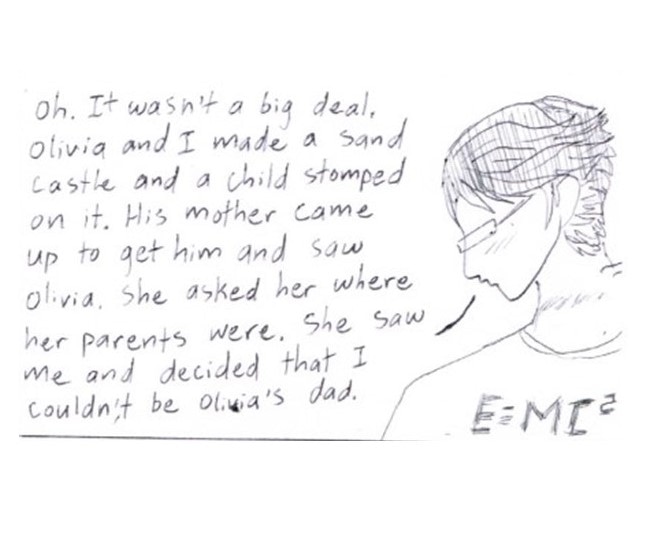 Oh. It wasn't a big deal.
Olivia and I made a sand
castle and a child stomped
on it. His mother came
up to get him and saw
Olivia. She asked her where
her parents were. She saw
me and decided that I
couldn't be Olivia's dad.
E=MC²